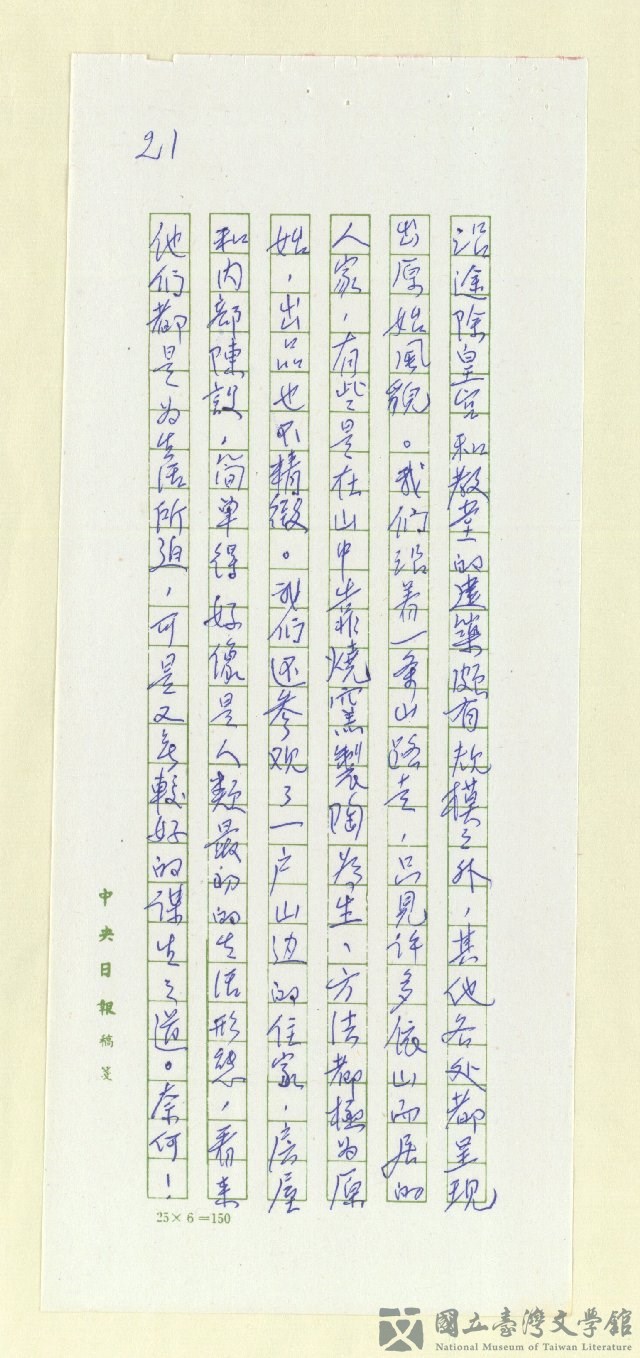 21
沿途除皇宮和教堂的建築頗有规模之外，其他各处都呈现
出原始風貌。我们沿着一条山路走，只見许多依山而居的
人家，有些是在山中靠燒窯製陶为生、方法都極为原
始，出品也不精緻。我们还参观了一户山边的住家，房屋
和内部陳設，简单得好像是人類最初的生活形態，看来
他们都是为生活所迫，可是又无較好的谋生之道。奈何！
中央日報稿箋
25×6=150
國立臺灣文學館
National Museum of Taiwan Literature